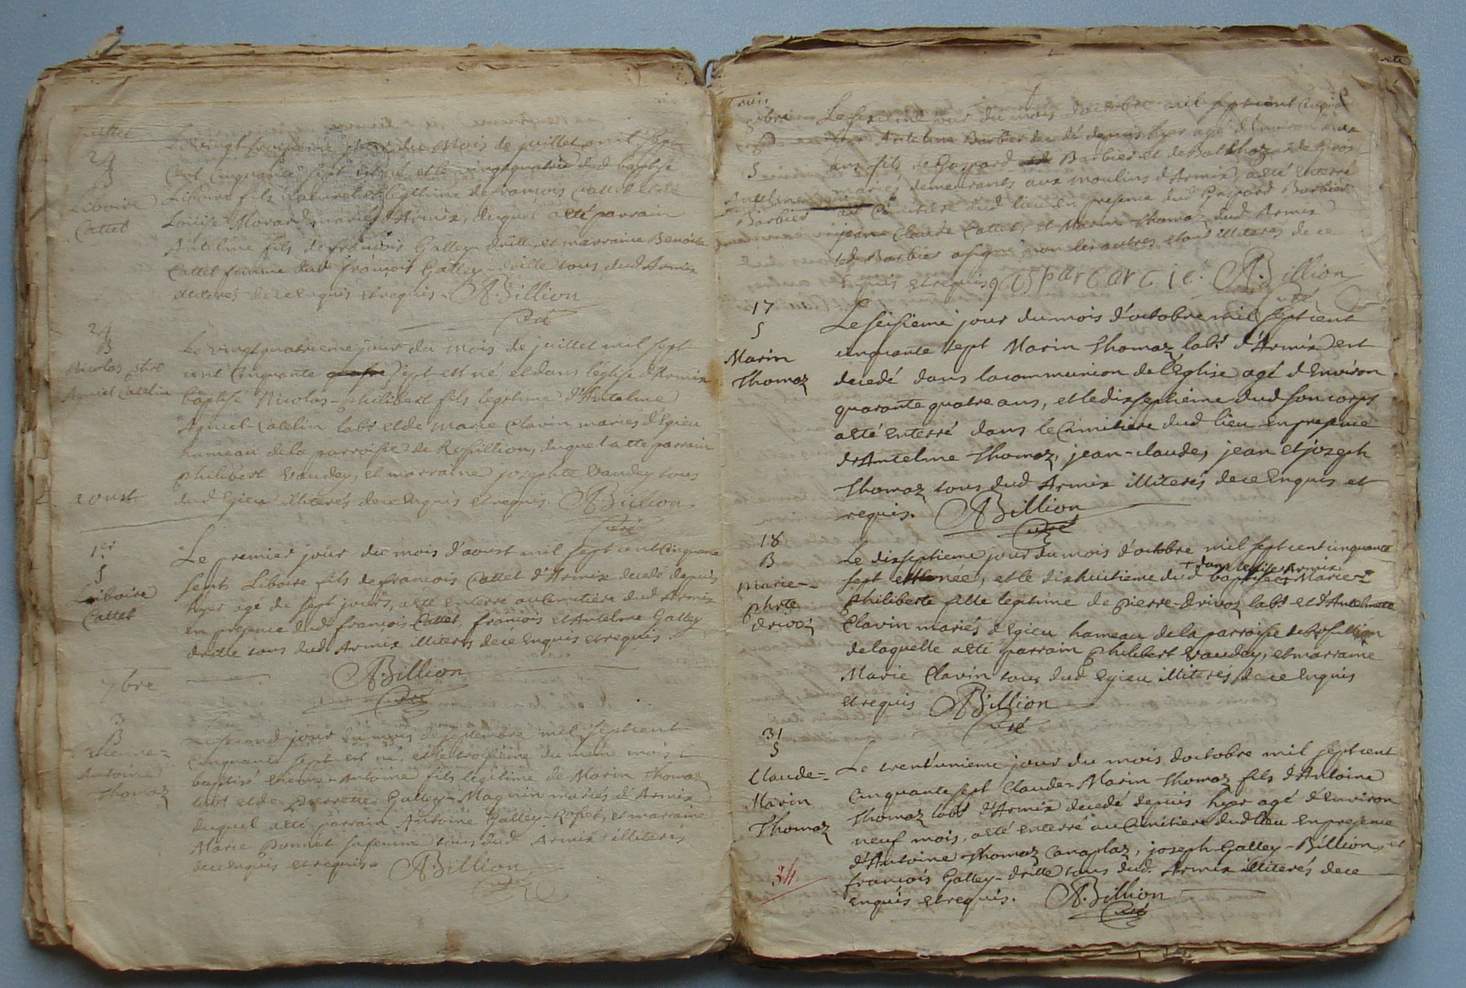 juillet
24
B
Liboire
Cattet
Le vingt troisieme jour du Mois de juillet mil sept
cent cinquante sept est né et le vingtquatre dud baptisé
Liboire fils naturel et legitime de françois Cattet et de
Louise Morand mariés d'Armix, duquel a eté parrain
Antelme fils de françois Galley-drille, et marraine Benoite
Cattet femme dud françois Galley-drille tous dud Armix
illiterés de ce enquis et requis. ABillion
curé
24
B
Nicolas phbt
Le vingtquatrieme jour du Mois de juillet mil sept
cent cinquante sept est né et dans l'eglise d'Armix
baptisé Nicolas-philibert fils legitime d'Antelme
labr et de Marie Clavin mariés d'Egieu
hameau de la parroisse de Rossillion, duquel a eté parrain
philibert Vauday, et marraine josephte Vauday tous
dud Egieu illiterés de ce enquis et requis. ABillion
curé
aoust
1er
S
Liboire
Cattet
Le premier jour du mois d'aoust mil sept cent cinquante
sept Liboire fils de françois Cattet d'Armix decedé depuis
hyer agé de sept jours, a eté enterré au cimetiere dud Armix
en presence dud françois Cattet, françois et Antelme Galley
drille tous dud Armix illiterés de ce enquis et requis.
ABillion
curé
7bre
3
B
Etienne-
Antoine
Thomaz
Le second jour du mois de septembre mil sept cent
cinquante sept est né, et le troisieme du meme mois
baptisé Etienne-Antoine fils legitime de Marin Thomaz
labr et de pierrette Galley-Magnin mariés d'Armix
duquel a eté parrain Antoine Galley- et marraine
Marie ponnet sa femme tous dud Armix illiterés
de ce enquis et requis. ABillion
curé
S
Antelme
Barbier
Le jour du mois d'octobre mil sept cent cinq.
Antelme Barbier decedé depuis hyer agé d'environ
ans fils de Gaspard Barbier et de
mariés demeurants aux moulins d'Armix, a eté enterré
au Cimitiere dud lieu en presence dud Gaspard Barbier
jean Claude Cattet, et Marin Thomaz dud Armix
led Barbier a signé non les autres etant illiterés de ce
enquis et requis ABillion
curé
17
S
Marin
Thomaz
Le seisieme jour du mois d'octobre mil sept cent
cinquante sept Marin Thomaz labr d'Armix est
decedé dans la communion de l'Eglise agé d'Environ
quarante quatre ans, et le dixseptieme dud son corps
a eté Enterré dans le Cimitiere dud lieu en presence
d'Antelme Thomaz, jean-claude, jean et joseph
Thomaz tous dud Armix illiterés de ce Enquis et
requis. ABillion
curé
18
B
Marie-
phrte
drivoz
Le dixseptieme jour du mois d'octobre mil sept cent cinquante
sept est née, et le dixhuitieme dud + dans l'eglise d'Armix baptisée Marie-
philiberte fille legitime de pierre drivoz labr et d'Anthelmette
Clavin mariés d'Egieu hameau de la parroisse de Rossillion
de laquelle a eté parrain philibert Vauday, et marraine
Marie Clavin tous dud Egieu illiterés de ce enquis
et requis ABillion
curé
31
S
Claude-
Marin
Thomaz
Le trenteunieme jour du mois d'octobre mil sept cent
cinquante sept Claude-Marin Thomaz fils d'Antoine
Thomaz labr d'Armix decedé depuis hyer agé d'environ
neuf mois, a eté enterré au Cimitiere dud lieu en presence
d'Antoine Thomaz Canaplaz, joseph Galley-Billion, et
françois Galley-drille tous dud. Armix illiterés de ce
enquis et requis. ABillion
curé